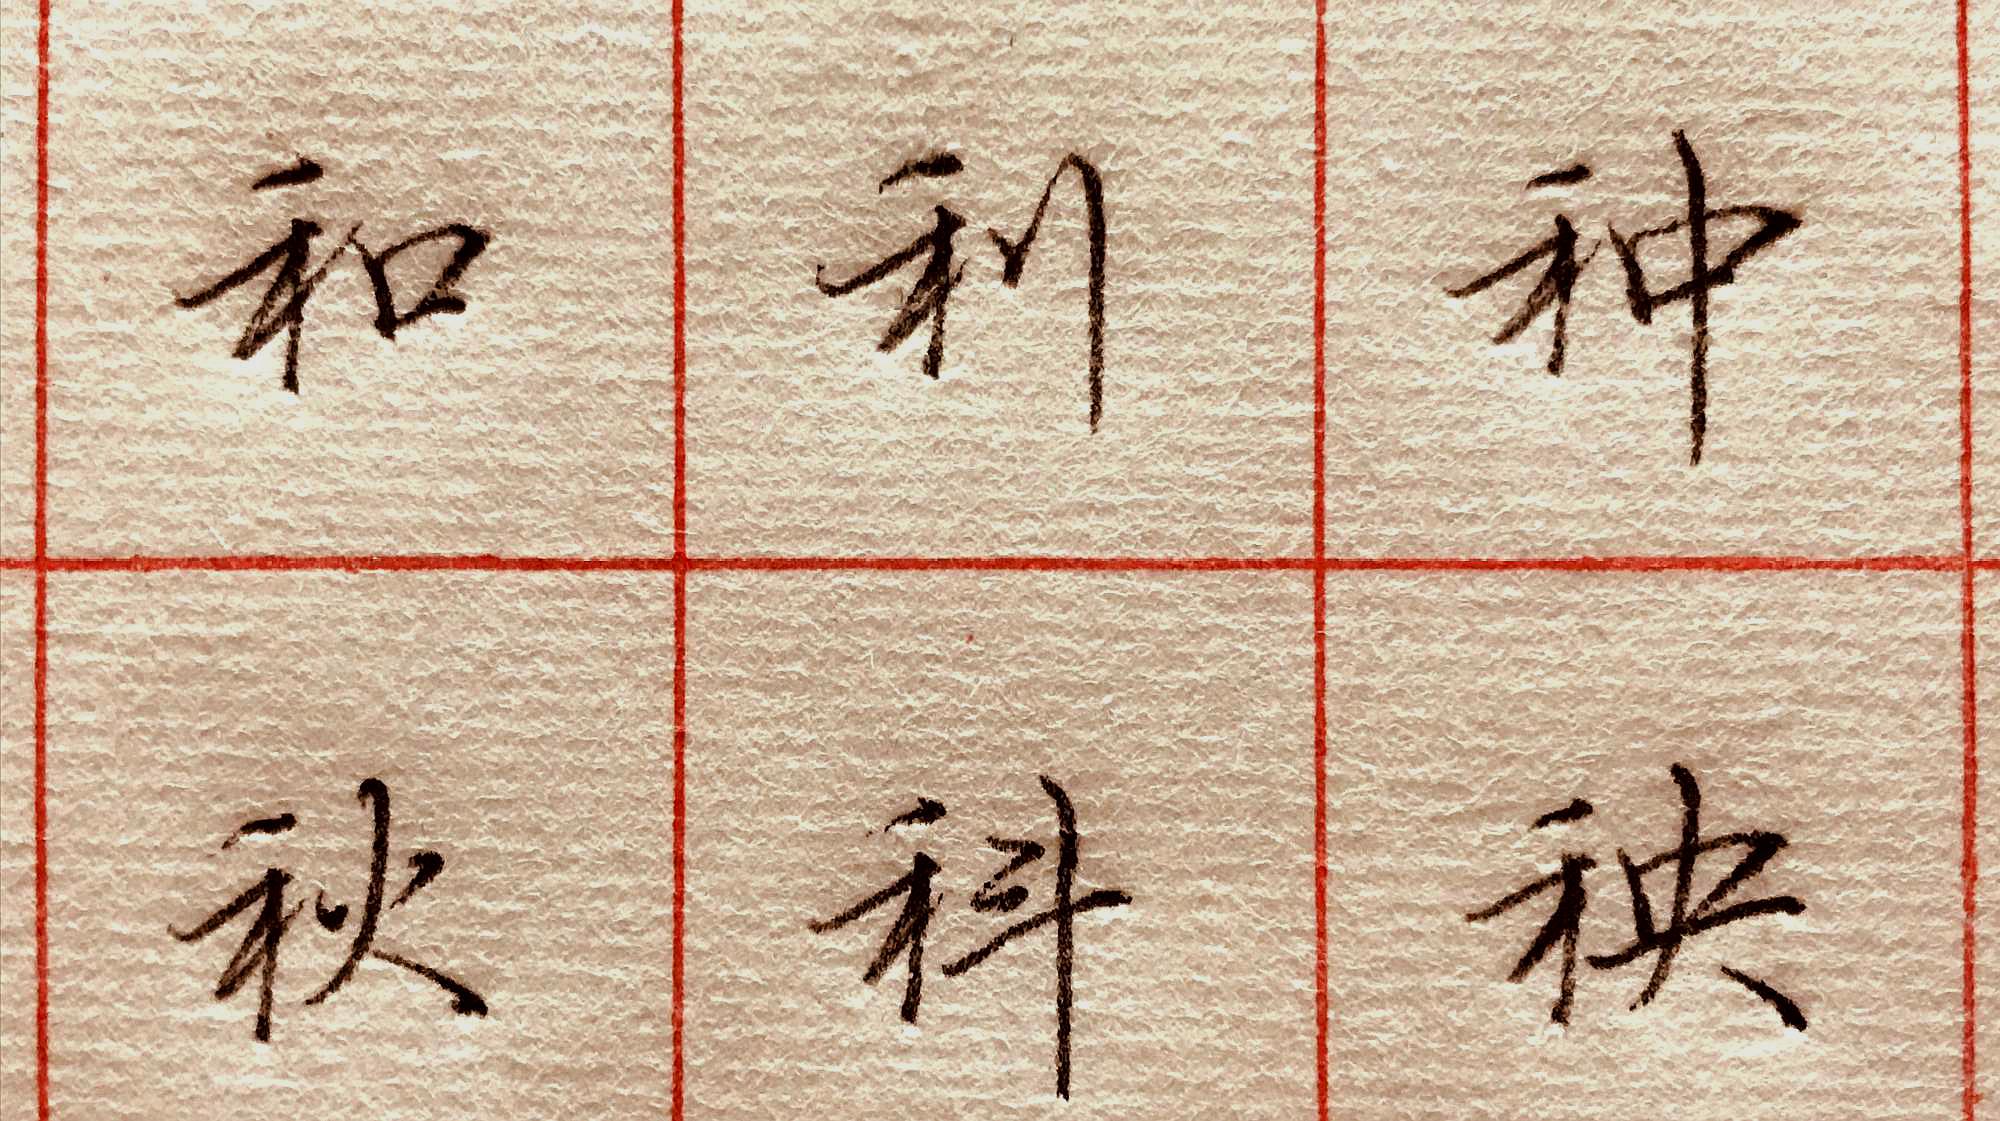 和利种
秋科秧